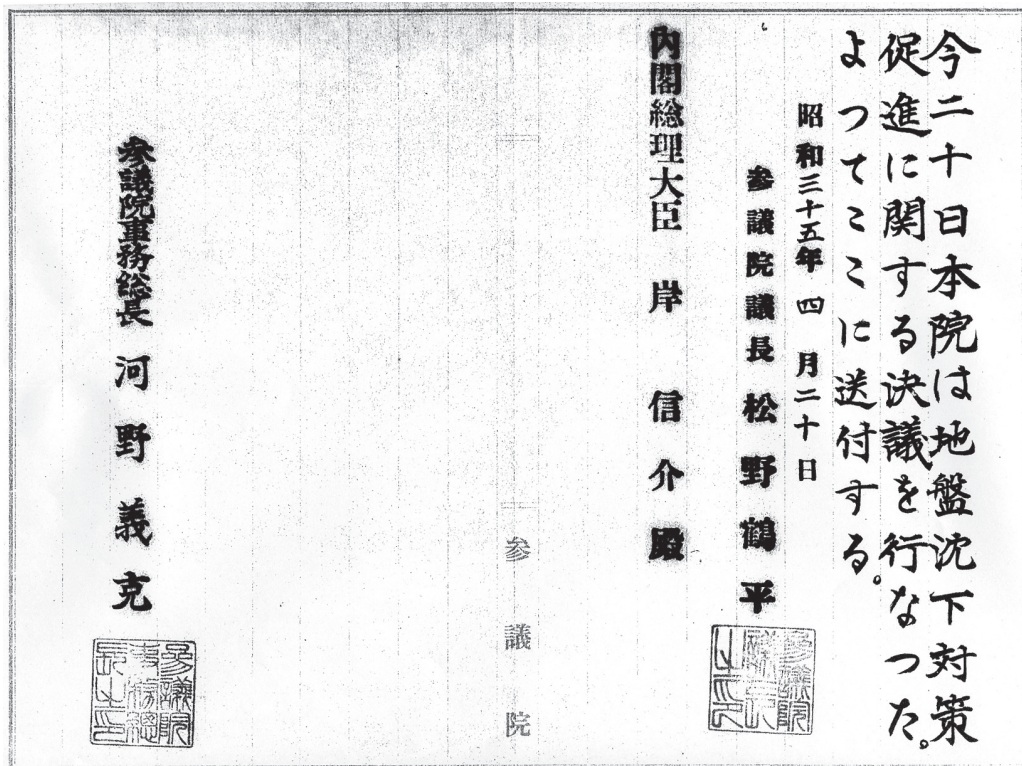 今二十日本院は地盤沈下対策
促進に関する決議を行なつた。
よつてここに送付する。
昭和三十五年四月二十日
参議院議長 松野鶴平
参議院議長之印
内閣総理大臣 岸 信介殿
参議院
参議院事務総長 河野義克
参議院事務総長之印